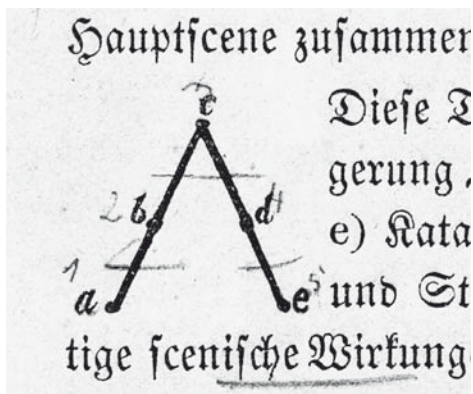 Hauptſcene zuſammen
c
Dieſe
gerung
b d
e) Kata
a e und St
tige ſceniſche Wirkung